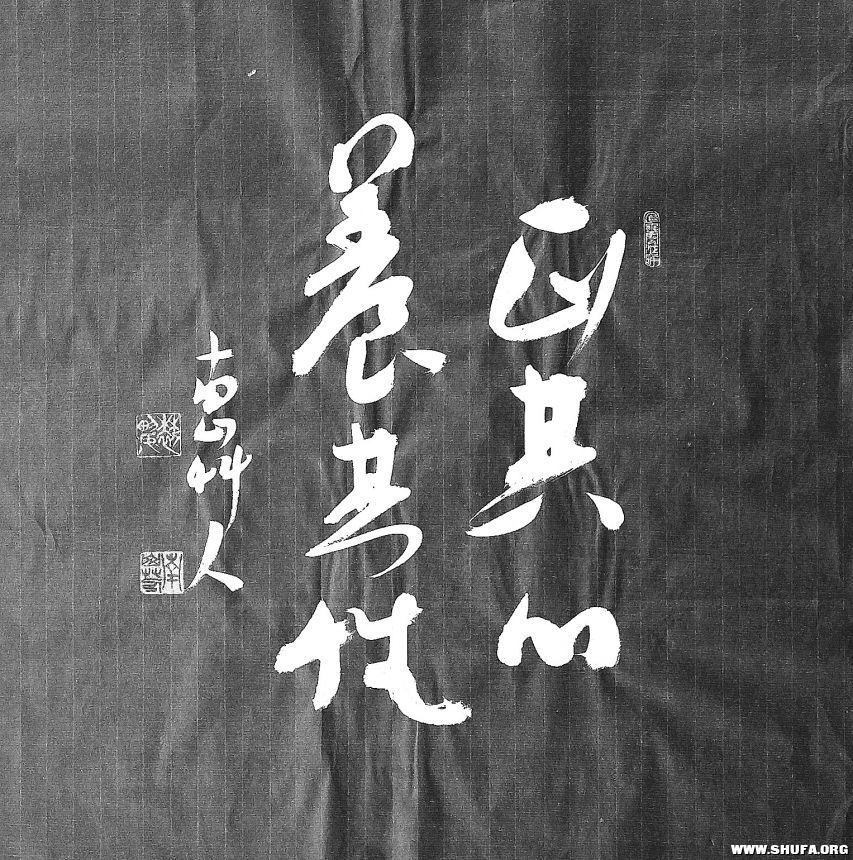 正其心
養其性
南山艸人
WWW.SHUFA.ORG